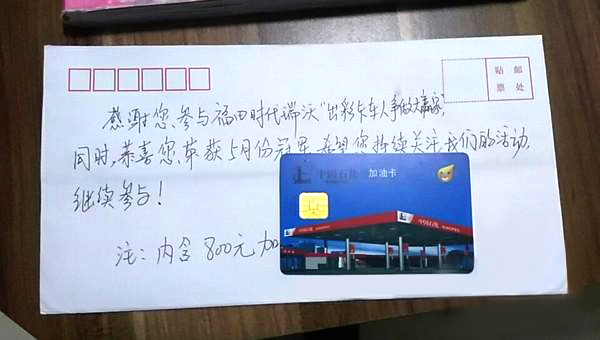 贴 邮
票 处
感谢您参与福田时代瑞沃“出彩卡车人争做大赢家”,
同时,恭喜您,荣获5月份冠军,希望您持续关注我们的活动,
继续参与!
注:内含800元加
中国石化 加油卡
中国石化